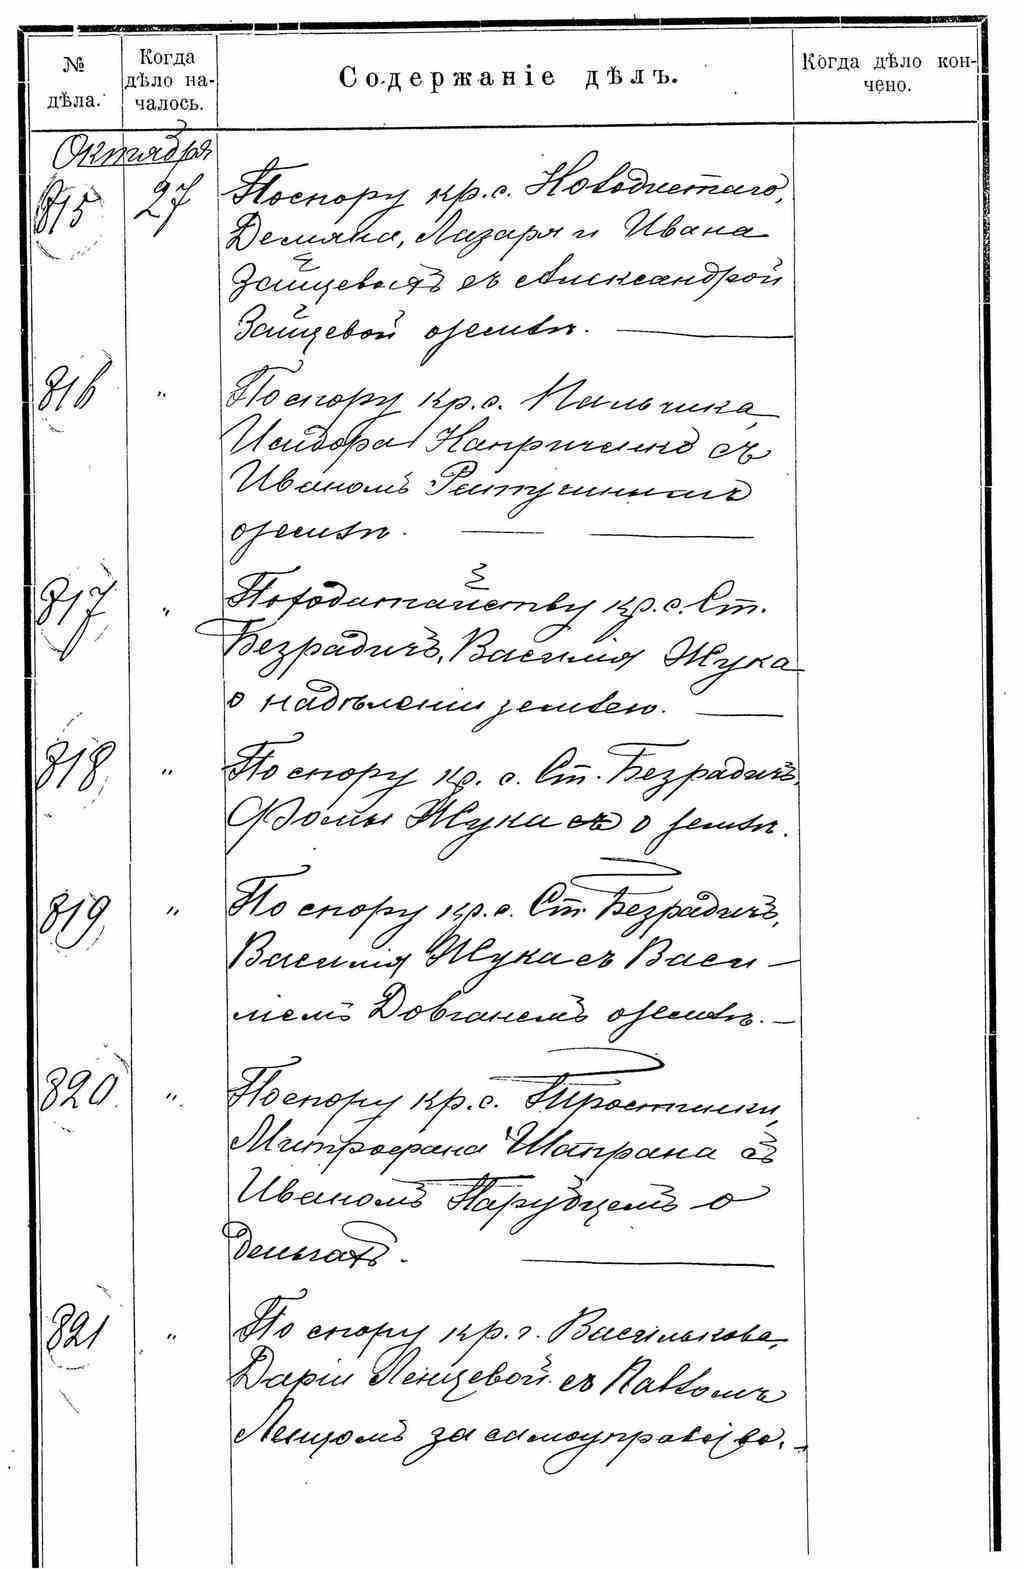 № дѣла. Когда дѣло на-чалось. Содержаніе дѣлъ. Когда дѣло кон-чено.
Октября
815 27 По спору кр. с.
Демяна, Лазаря и Ивана
Зайцевыхъ съ Александрой
Зайцевой о землѣ.
816 " По спору кр. с. Пальчика
Исидора съ
Иваномъ
о землѣ.
817 " По ходатайству кр. с. Ст.
Безрадичъ, Василія Жука
о надѣленіи землею.
818 " По спору кр. с. Ст. Безрадичъ,
Фомы Жука съ о землѣ.
819 " По спору кр. с. Ст. Безрадичъ,
Василія Жука съ Васи-
ліемъ Довганемъ о землѣ.
820 " По спору кр. с. Тростинки,
Митрофана Шапрана съ
Иваномъ Парубцемъ о
деньгахъ.
821 " По спору кр. г. Василькова,
Даріи Ленцевой съ Павломъ
Ленцомъ за самоуправство.